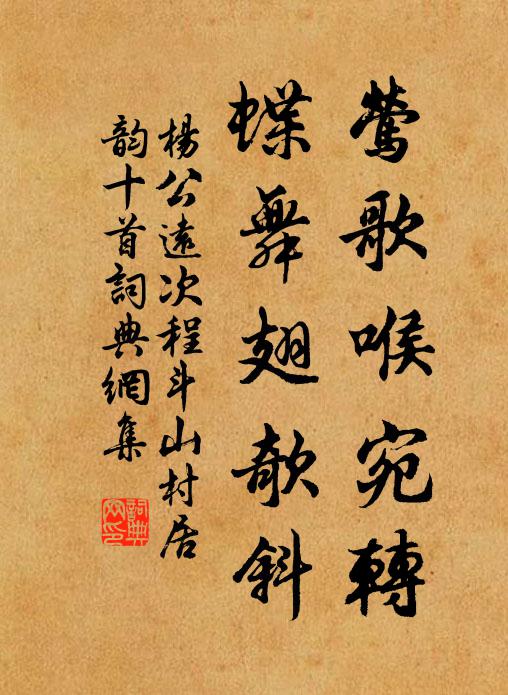 鶯歌喉宛轉
蝶舞翅欹斜
楊公遠次程斗山村居
韵十首詞典網集
詞典
网印